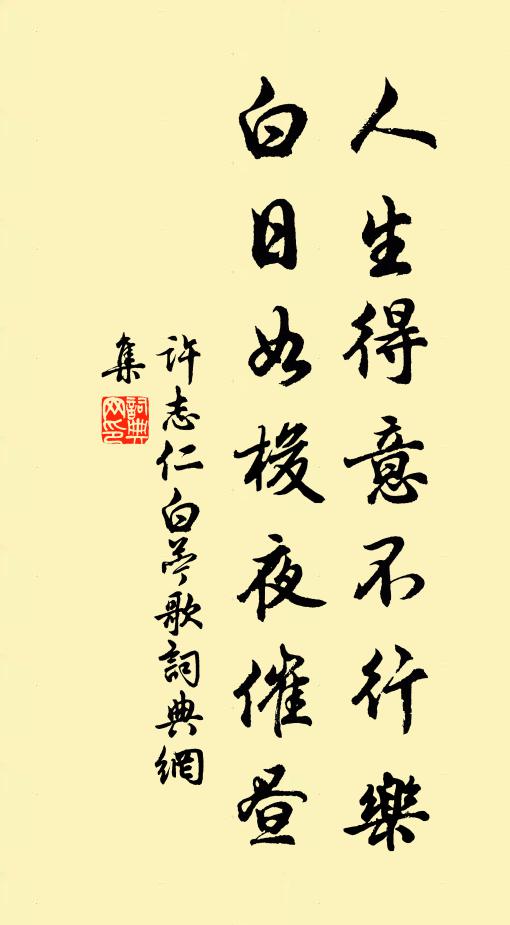 人生得意不行樂
白日如梭夜催昼
許志仁白苎歌詞典網
集
詞典
网印